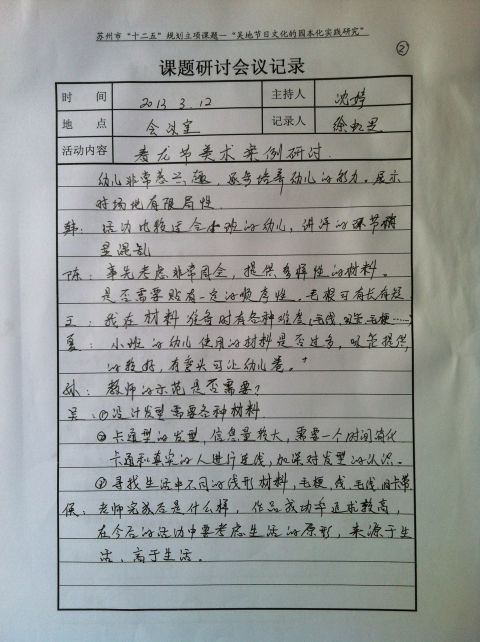 苏州市“十二五”规划立项课题—“吴地节日文化的园本化实践研究”
②
课题研讨会议记录
时 间 2013 3. 12 主持人 沈婷
地 点 会议室 记录人 徐虹
活动内容 春龙节美术案例研讨.
幼儿非常感兴趣, 逐步培养幼儿的能力。展示
时场地有限局性.
韩: 活动比较适合小班的幼儿, 讲评的环节稍
显混乱
陈: 事先考虑非常周全, 提供多样性的材料。
是否需要贴有一定的顺序性, 毛根可有长有短
王: 我在材料准备时有各种难度(毛线, 吸管, 毛根……)
夏: 小班的幼儿使用的材料是否过多, 吸管提供
的较好, 有弯头可让幼儿卷。
孙: 教师的示范是否需要?
吴: ①设计发型需要各种材料
②卡通型的发型, 信息量较大, 需要一个时间简化
卡通和真实的人进行连线, 加深对发型的认识。
③寻找生活中不同的线形材料, 毛根, 线, 毛线, 旧卡带
侯: 老师完成后是什么样, 作品成功率追求较高,
在今后的活动中要考虑生活的原形, 来源于生
活, 高于生活。